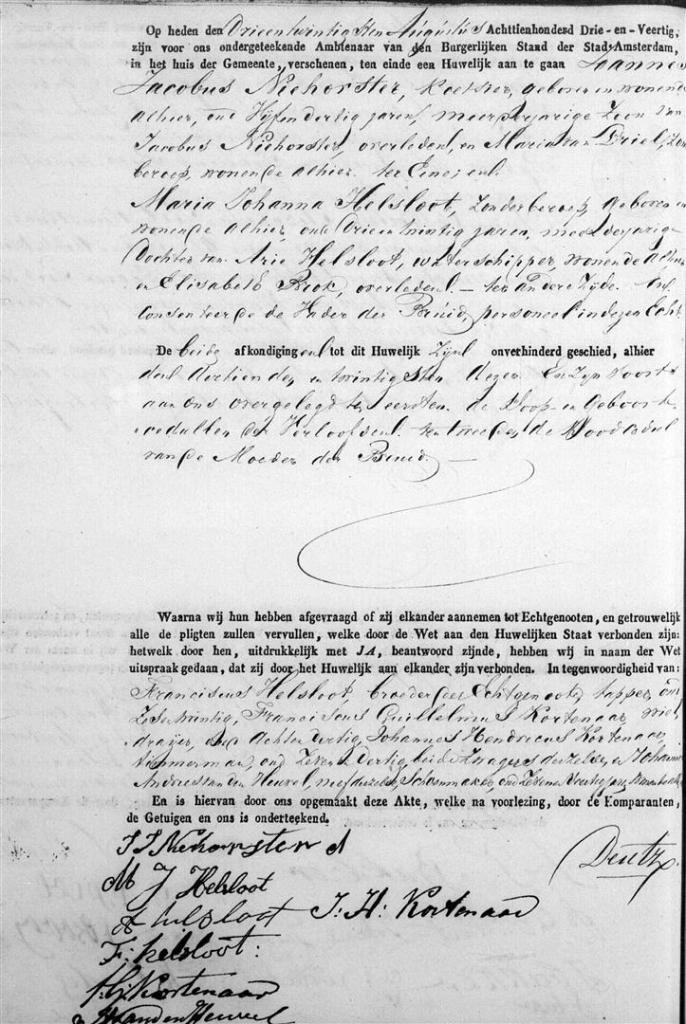 Op heden den Drieentwintigsten Augustus Achttienhonderd Drie-en-Veertig,
zijn voor ons ondergeteekende Ambtenaar van den Burgerlijken Stand der Stad Amsterdam,
in het huis der Gemeente, verschenen, ten einde een Huwelijk aan te gaan Joannes
Jacobus Niehorster, geboren en wonende
alhier, oud Vijfendertig jaren, meerderjarige Zoon van
Jacobus Niehorster, overleden, en Maria van Driel, zon
beroep, wonende alhier ter Eenre; en
Maria Johanna Helsloot, zonder beroep, geboren en
wonende alhier, oud Drieentwintig jaren, meerderjarige
Dochter van Arie Helsloot, waterschipper, wonende alhier
en Elisabeth Brok, overleden. — ter andere Zijde.
Consenteerde de Vader der Bruid, personeel in dezen Echt.
De beide afkondigingen tot dit Huwelijk zijn onverhinderd geschied, alhier
den dertienden en twintigsten dezer. En zijn voorts
aan ons overgelegd ten eersten de Doop- en Geboorte
cedullen der Verloofden ten tweede de Doodcedul
van de Moeder der Bruid. —
Waarna wij hun hebben afgevraagd of zij elkander aannemen tot Echtgenooten, en getrouwelijk
alle de pligten zullen vervullen, welke door de Wet aan den Huwelijken Staat verbonden zijn:
hetwelk door hen, uitdrukkelijk met JA, beantwoord zijnde, hebben wij in naam der Wet
uitspraak gedaan, dat zij door het Huwelijk aan elkander zijn verbonden. In tegenwoordigheid van:
Franciscus Helsloot, broeder der Echtgenoote, tapper, oud
Zesentwintig, Franciscus Guillelmus Kortenaar,
draijer, oud Achtendertig, Johannes Hendricus Kortenaar,
Timmerman, oud Zeven en Dertig, beide Zwagers derzelve, en Johannes
Andries van den Heuvel, neef derzelve, Schoenmaker, oud Zeven en Veertig jaren,
En is hiervan door ons opgemaakt deze Akte, welke na voorlezing, door de Komparanten,
de Getuigen en ons is onderteekend.
J J Niehorster
Deutz
M J Helsloot
A helsloot J: H: Kortenaar
F: helsloot:
f: g: Kortenaar
van den Heuvel